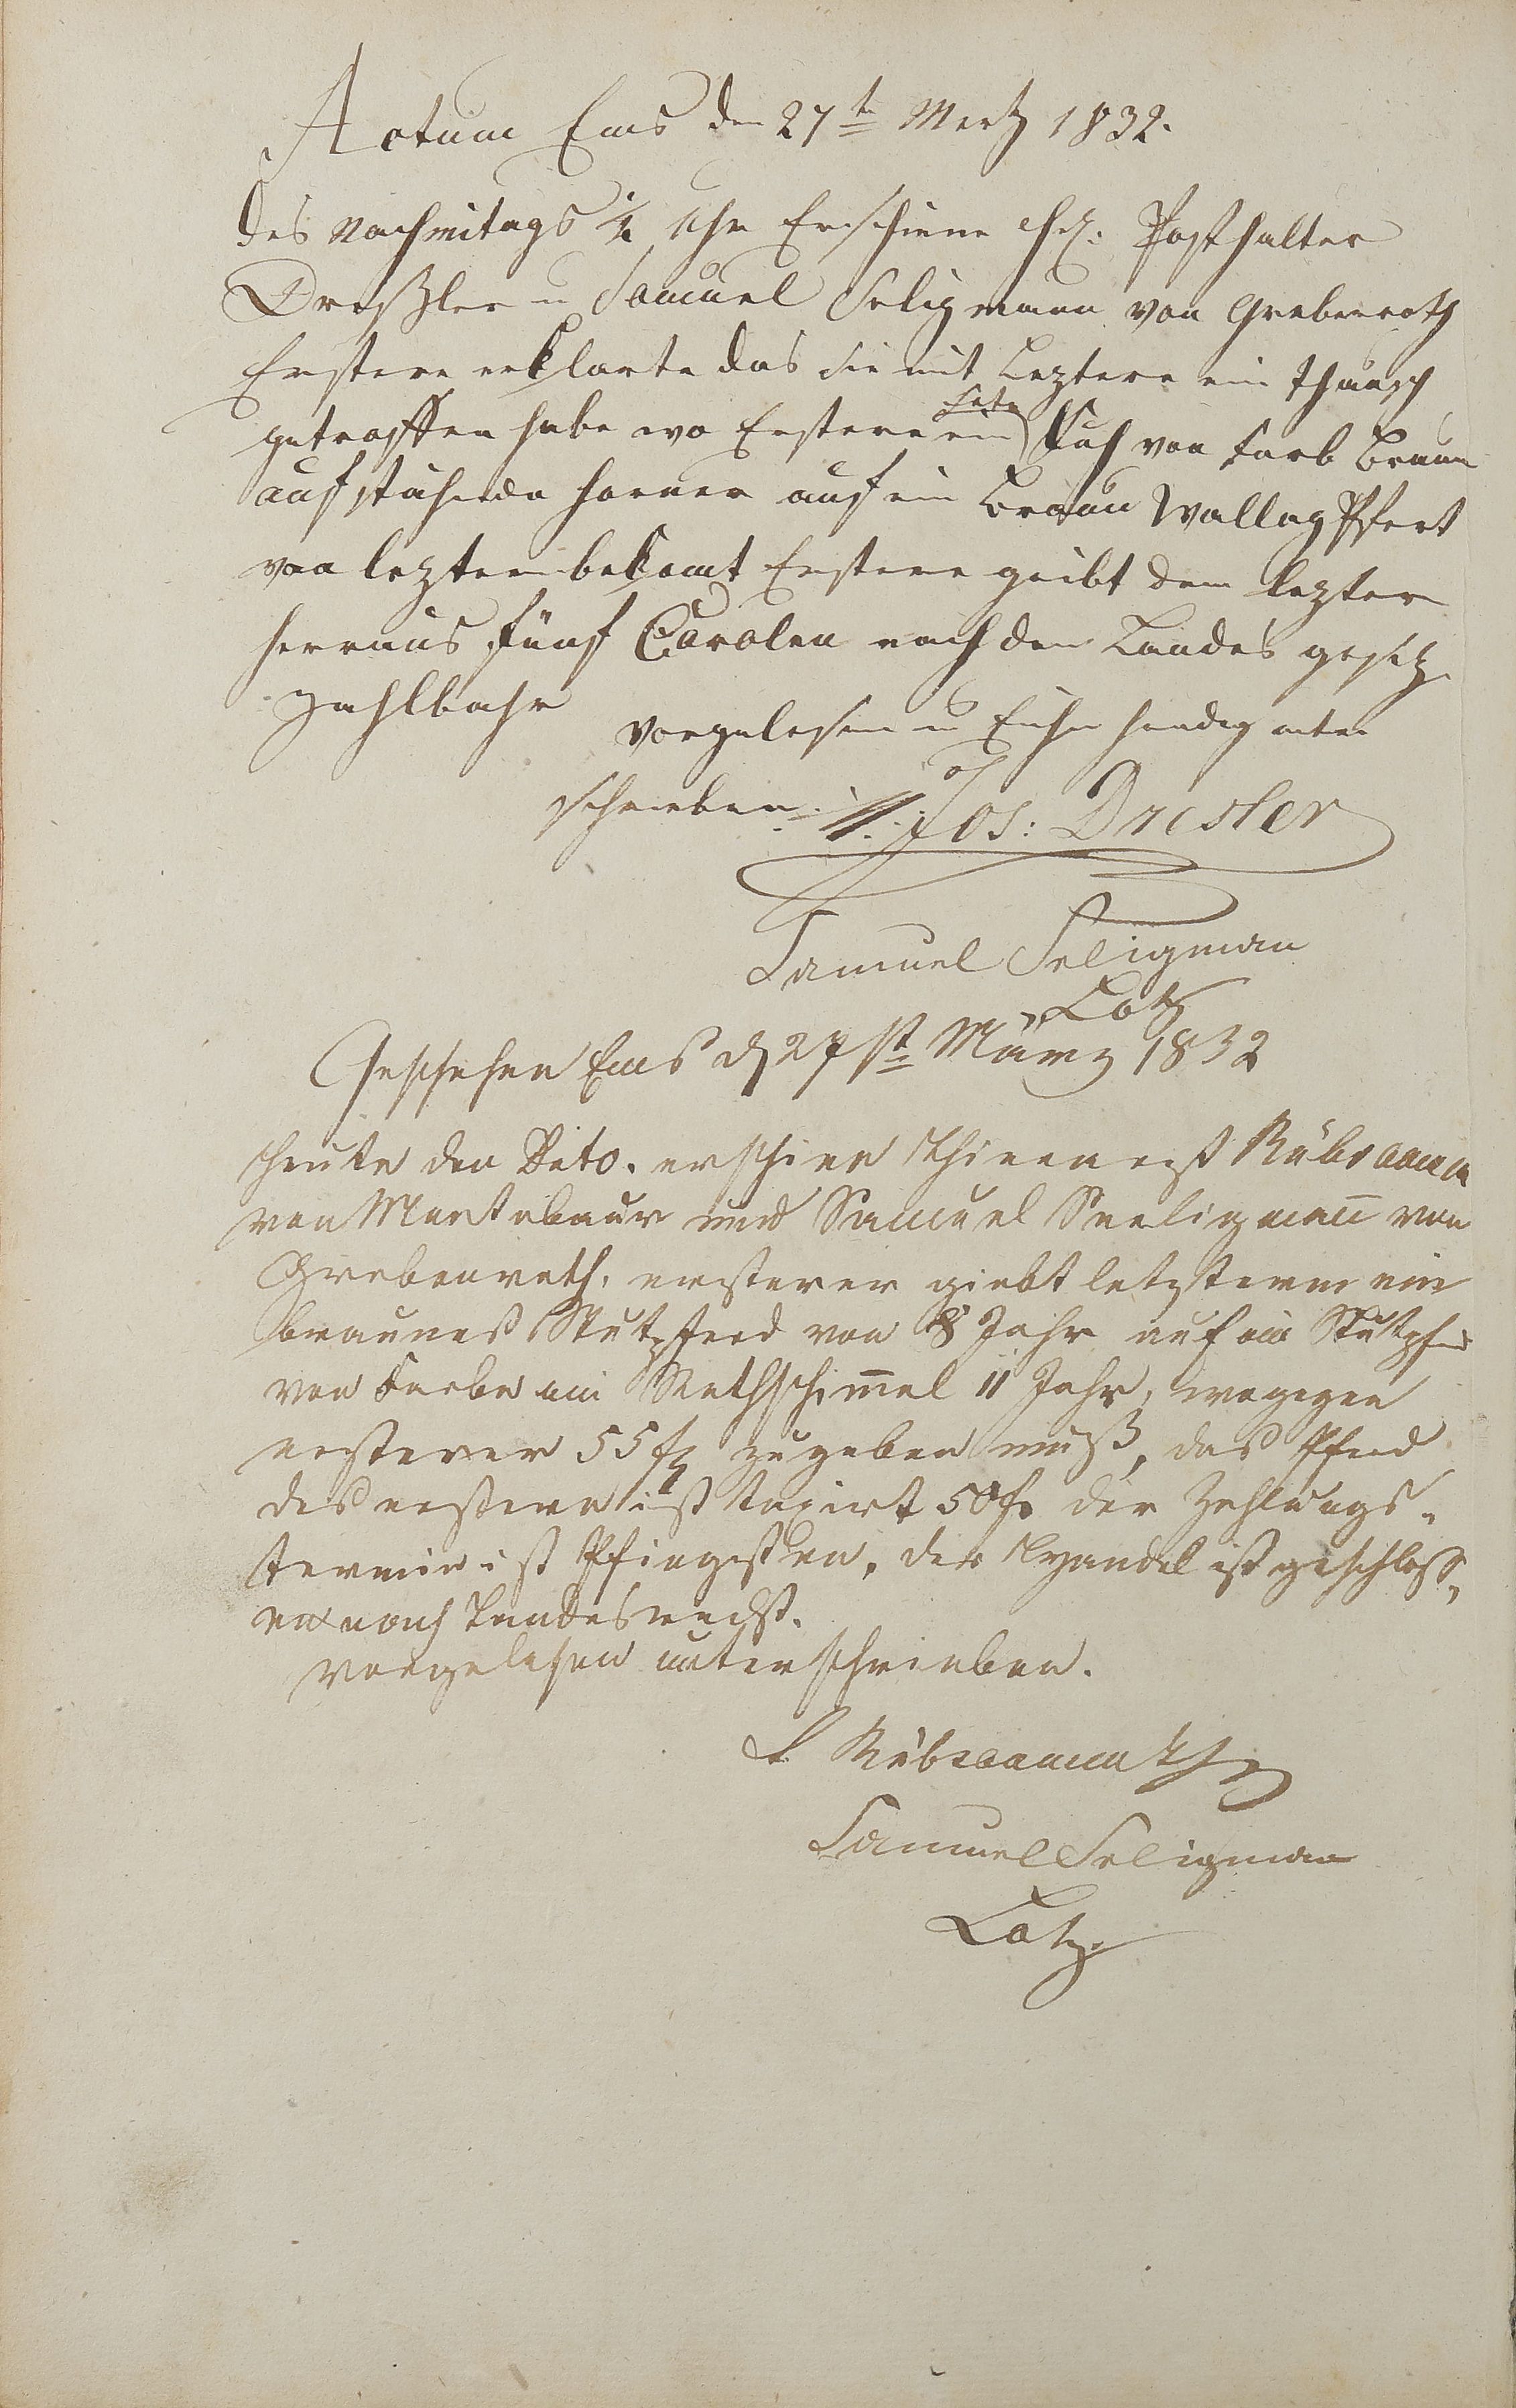 Actum Ems den 27t Mertz 1832.
des Nachmitags Uhr Erschiene H: Posthalter
Dreßler u Samuel Seligmann von Grebenroth
Erstere erklarte das sie mit Leztere ein Thausch
getroffen habe wo Erstere ein fete Kuh von farb Braun
auf stähende horner auf ein Braun Wallag Pfert
von leztern bekomt Erstere geibt dem lezter
herraus fünf Carolen nach dem Landes gesetz
zahlbahr
vorgelesen u Eichen hendig unter
schrieben
Jos: Dresler
Samuel Seligman
Lotz
Geschehen Ems d 27st März 1832
Heute den Dato. erschien Rübsamen
von Montabaur und Samuel Seeligmañ von
Grebenroth, ersterer giebt letzterem ein
braunes Stutpferd von 8 Jahr auf ein Stutpfer
von Farbe ein Rothschim̄el 11 Jahr, wogegen
ersterer 55 f zugeben muß, das Pferd
des erstern ist taxirt 50 f. der Zahlungs-
termin ist Pfingsten, der Handel ist geschloss-
en nach Landesrecht.
vorgelesen unterschrieben.
Rübsaamen
Samuel Seligman
Lotz